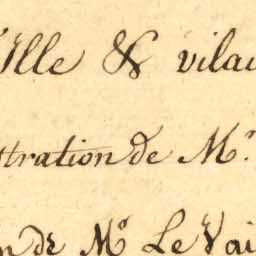 Ille & vilai
stration de Mr.
n de Mr Le Vai